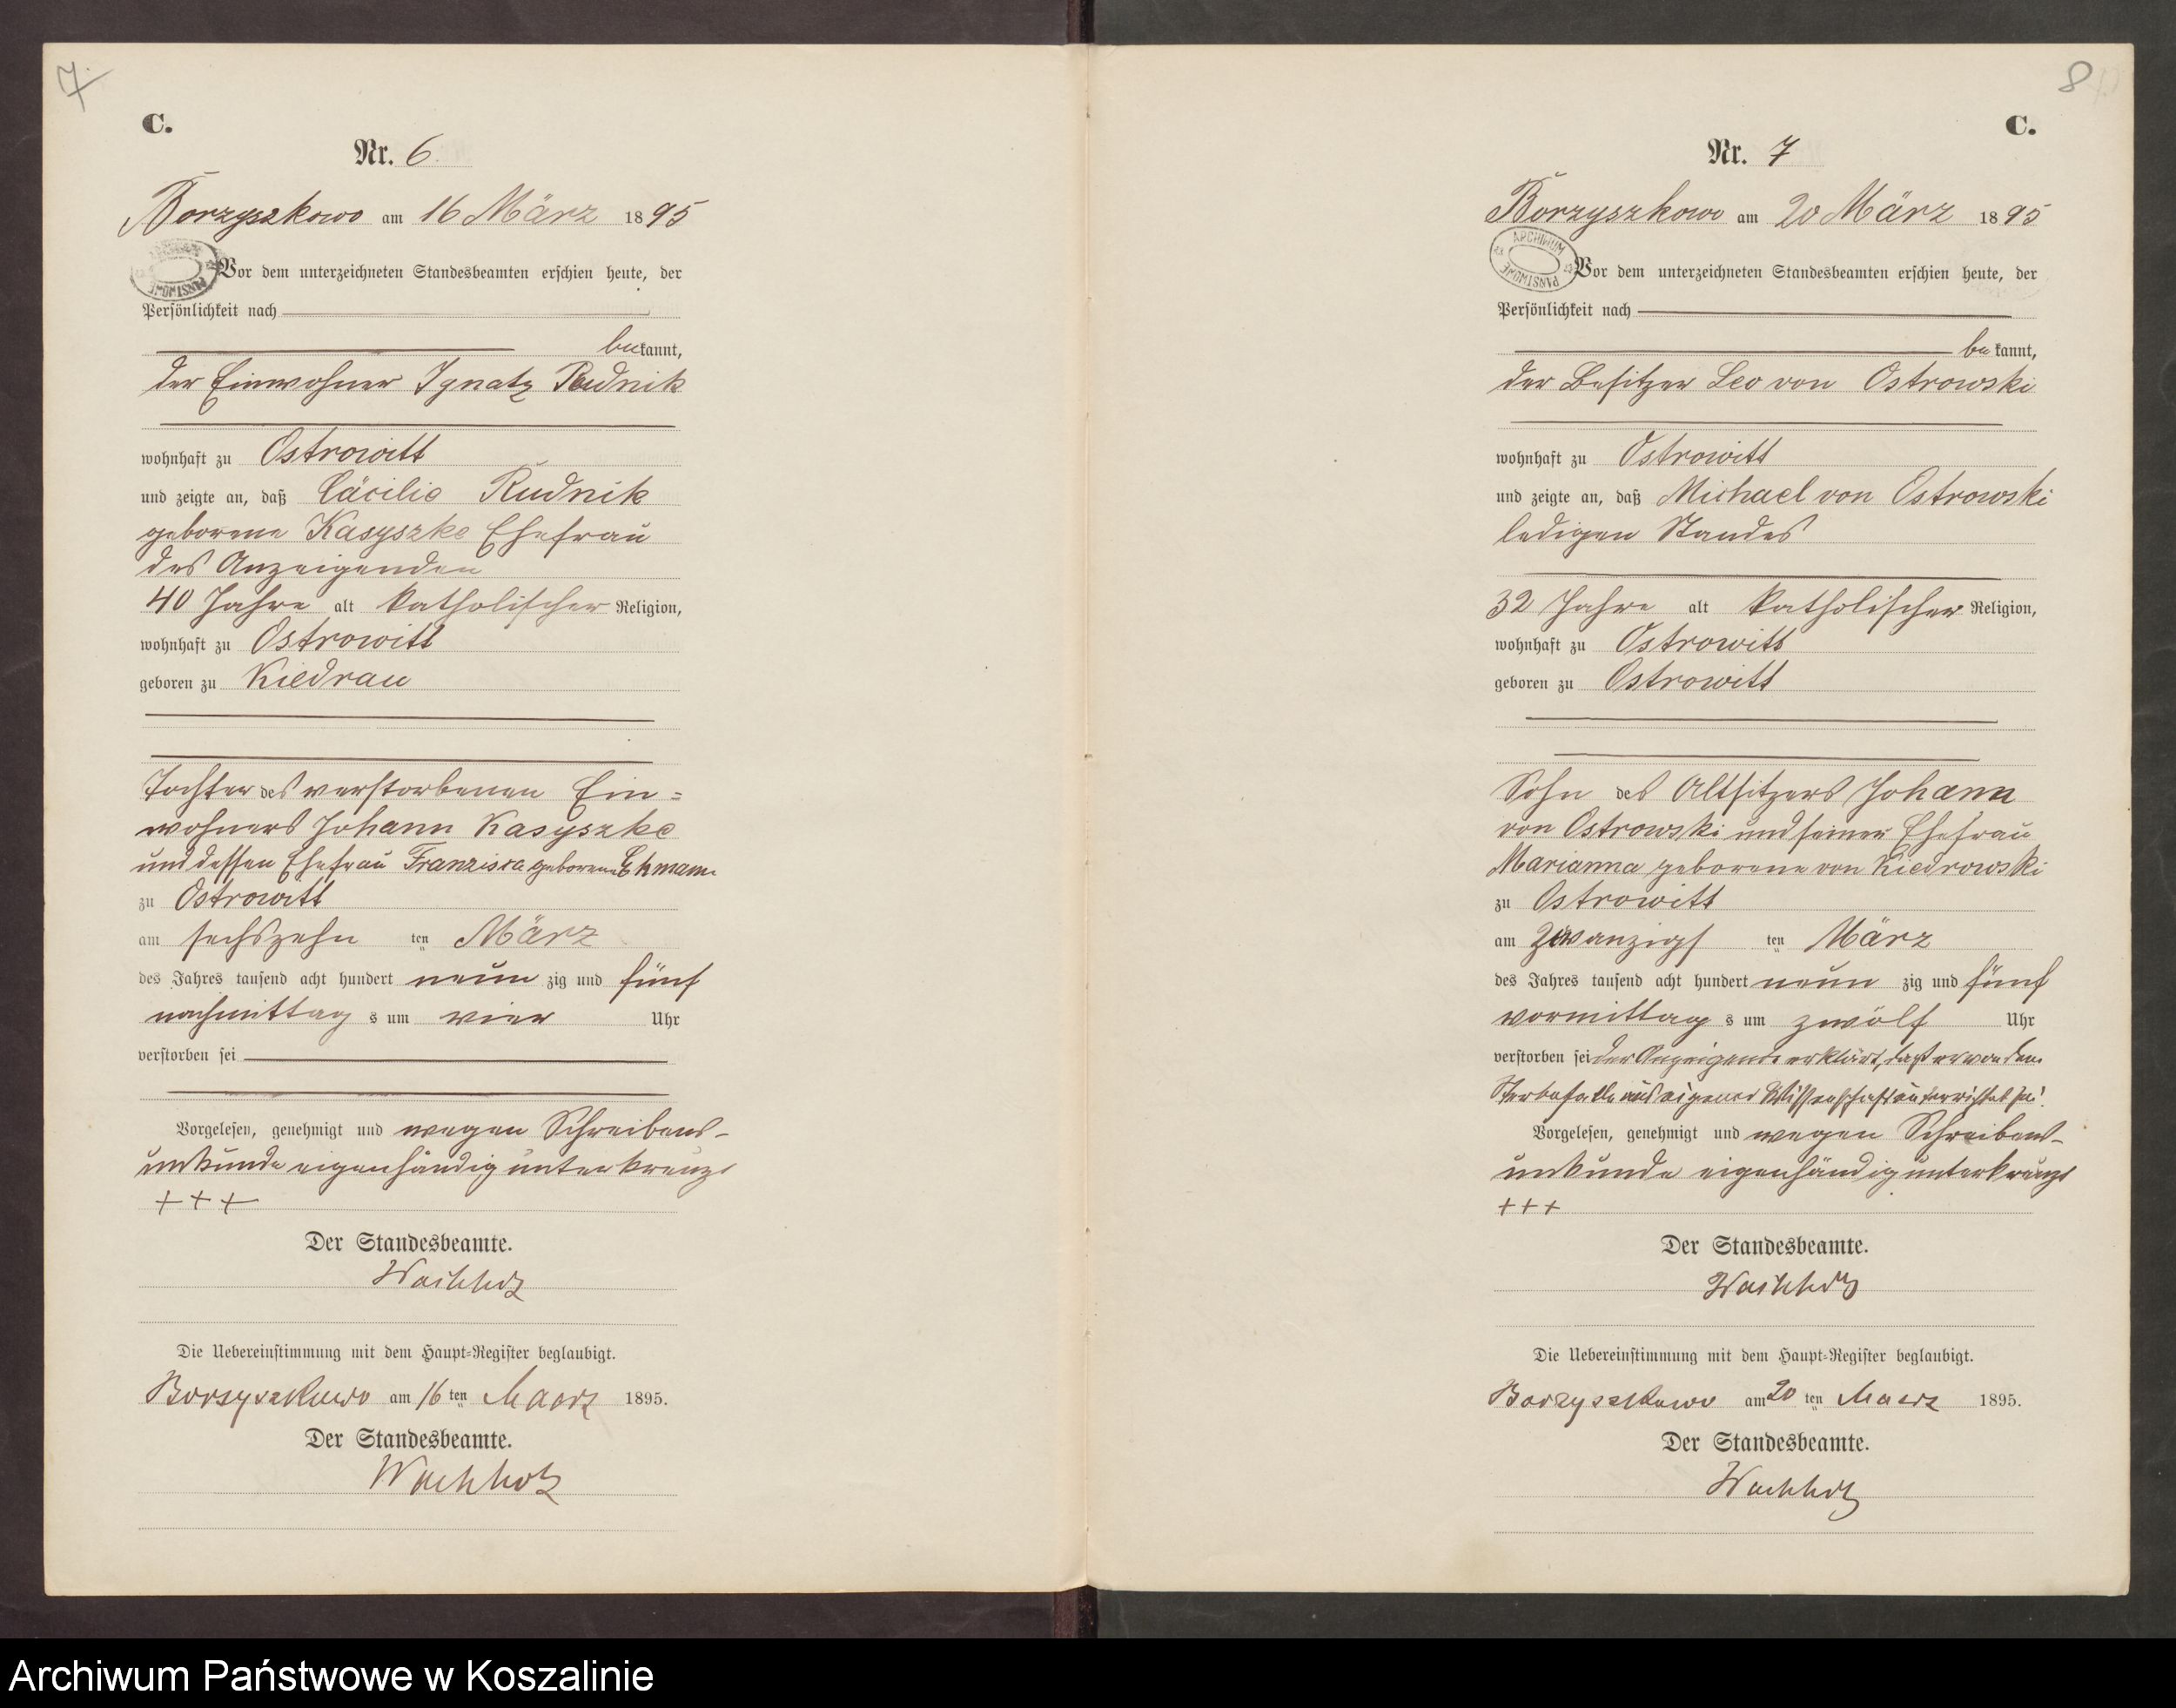 7.
C.
Nr. 6
Borzyszkowo am 16 März 1895
ARCHIWUM PAŃSTWOWE
Vor dem unterzeichneten Standesbeamten erschien heute, der
Persönlichkeit nach
bekannt,
der Einwohner Ignatz Rudnik
wohnhaft zu Ostrowitt
und zeigte an, daß Cäcilie Rudnik
geborene Kasyszke Ehefrau
des Anzeigenden
40 Jahre alt katholischer Religion,
wohnhaft zu Ostrowitt
geboren zu Kiedrau
Tochter des verstorbenen Ein=
wohners Johann Kasyszke
und dessen Ehefrau Franziska geborene
zu Ostrowitt
am sechszehn ten März
des Jahres tausend acht hundert neun zig und fünf
nachmittag s um vier Uhr
verstorben sei
Vorgelesen, genehmigt und wegen Schreibens-
unkunde eigenhändig unterkreuzt
+++
Der Standesbeamte.
Wachholz
Die Uebereinstimmung mit dem Haupt=Register beglaubigt.
Borzyszkowo am 16 ten Maerz 1895.
Der Standesbeamte.
Wachholz
8
C.
Nr. 7
Borzyszkowo am 20 März 1895
ARCHIWUM PAŃSTWOWE
Vor dem unterzeichneten Standesbeamten erschien heute, der
Persönlichkeit nach
bekannt,
der Besitzer Leo von Ostrowski
wohnhaft zu Ostrowitt
und zeigte an, daß Michael von Ostrowski
ledigen Standes
32 Jahre alt katholischer Religion,
wohnhaft zu Ostrowitt
geboren zu Ostrowitt
Sohn des Altsitzers Johann
von Ostrowski und seiner Ehefrau
Marianna geborene von Kiedrowski
zu Ostrowitt
am zwanzigs ten März
des Jahres tausend acht hundert neun zig und fünf
vormittag s um zwölf Uhr
verstorben sei der Anzeigende erklärt, daß er von dem
Sterbefalle aus eigener Wissenschaft unterrichtet sei.
Vorgelesen, genehmigt und wegen Schreibens-
unkunde eigenhändig unterkreuzt
+++
Der Standesbeamte.
Wachholz
Die Uebereinstimmung mit dem Haupt=Register beglaubigt.
Borzyszkowo am 20 ten Maerz 1895.
Der Standesbeamte.
Wachholz
Archiwum Państwowe w Koszalinie